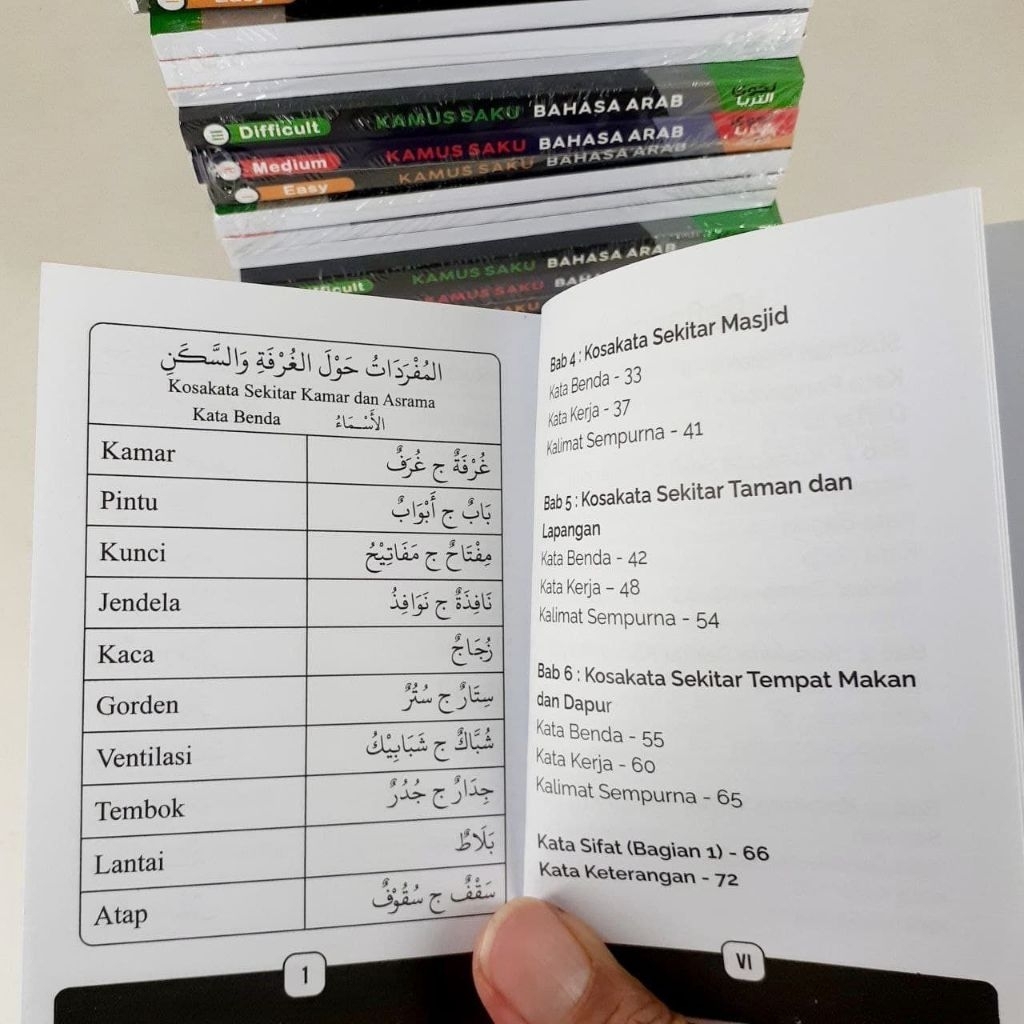 Easy
Difficult KAMUS SAKU BAHASA ARAB
Medium KAMUS SAKU BAHASA ARAB
Easy KAMUS SAKU BAHASA ARAB
KAMUS SAKU BAHASA ARAB
KAMUS SAKU
المُفْرَدَاتُ حَوْلَ الغُرْفَةِ وَالسَّكَنِ
Kosakata Sekitar Kamar dan Asrama
Kata Benda الأَسْمَاءُ
Kamar غُرْفَةٌ ج غُرَفٌ
Pintu بَابٌ ج أَبْوَابٌ
Kunci مِفْتَاحٌ ج مَفَاتِيْحُ
Jendela نَافِذَةٌ ج نَوَافِذُ
Kaca زُجَاجٌ
Gorden سِتَارٌ ج سُتُرٌ
Ventilasi شُبَّاكٌ ج شَبَابِيْكُ
Tembok جِدَارٌ ج جُدُرٌ
Lantai بَلَاطٌ
Atap سَقْفٌ ج سُقُوْفٌ
1
Bab 4 : Kosakata Sekitar Masjid
Kata Benda - 33
Kata Kerja - 37
Kalimat Sempurna - 41
Bab 5 : Kosakata Sekitar Taman dan
Lapangan
Kata Benda - 42
Kata Kerja – 48
Kalimat Sempurna - 54
Bab 6 : Kosakata Sekitar Tempat Makan
dan Dapur
Kata Benda - 55
Kata Kerja - 60
Kalimat Sempurna - 65
Kata Sifat (Bagian 1) - 66
Kata Keterangan - 72
VI